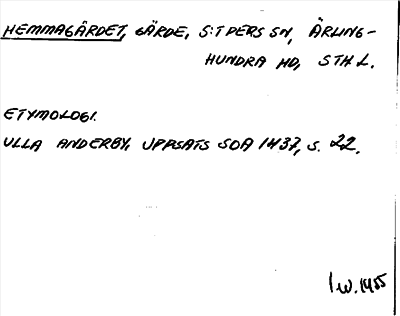 HEMMAGÄRDET, GÄRDE, S:T PERS SN, ÄRLING-
HUNDRA HD, STH L.
ETYMOLOGI.
ULLA ANDERBY, UPPSATS SOA 1437, S. 22.